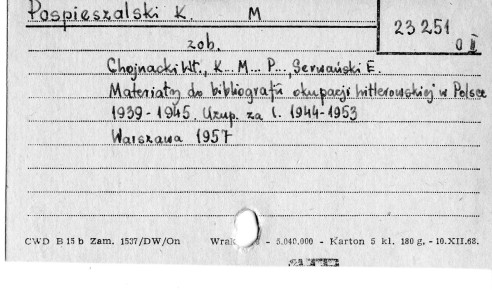 Pospieszalski K. M
23 251
0 II
zob.
Chojnacki Wł., K... M... P..., Serwański E.
Materiały do bibliografii okupacji hitlerowskiej w Polsce
1939-1945. Uzup. za l. 1944-1953
Warszawa 1957
CWD B 15 b Zam. 1537/DW/On - 5.040.000 - Karton 5 kl. 180 g. - 10.XII.68.